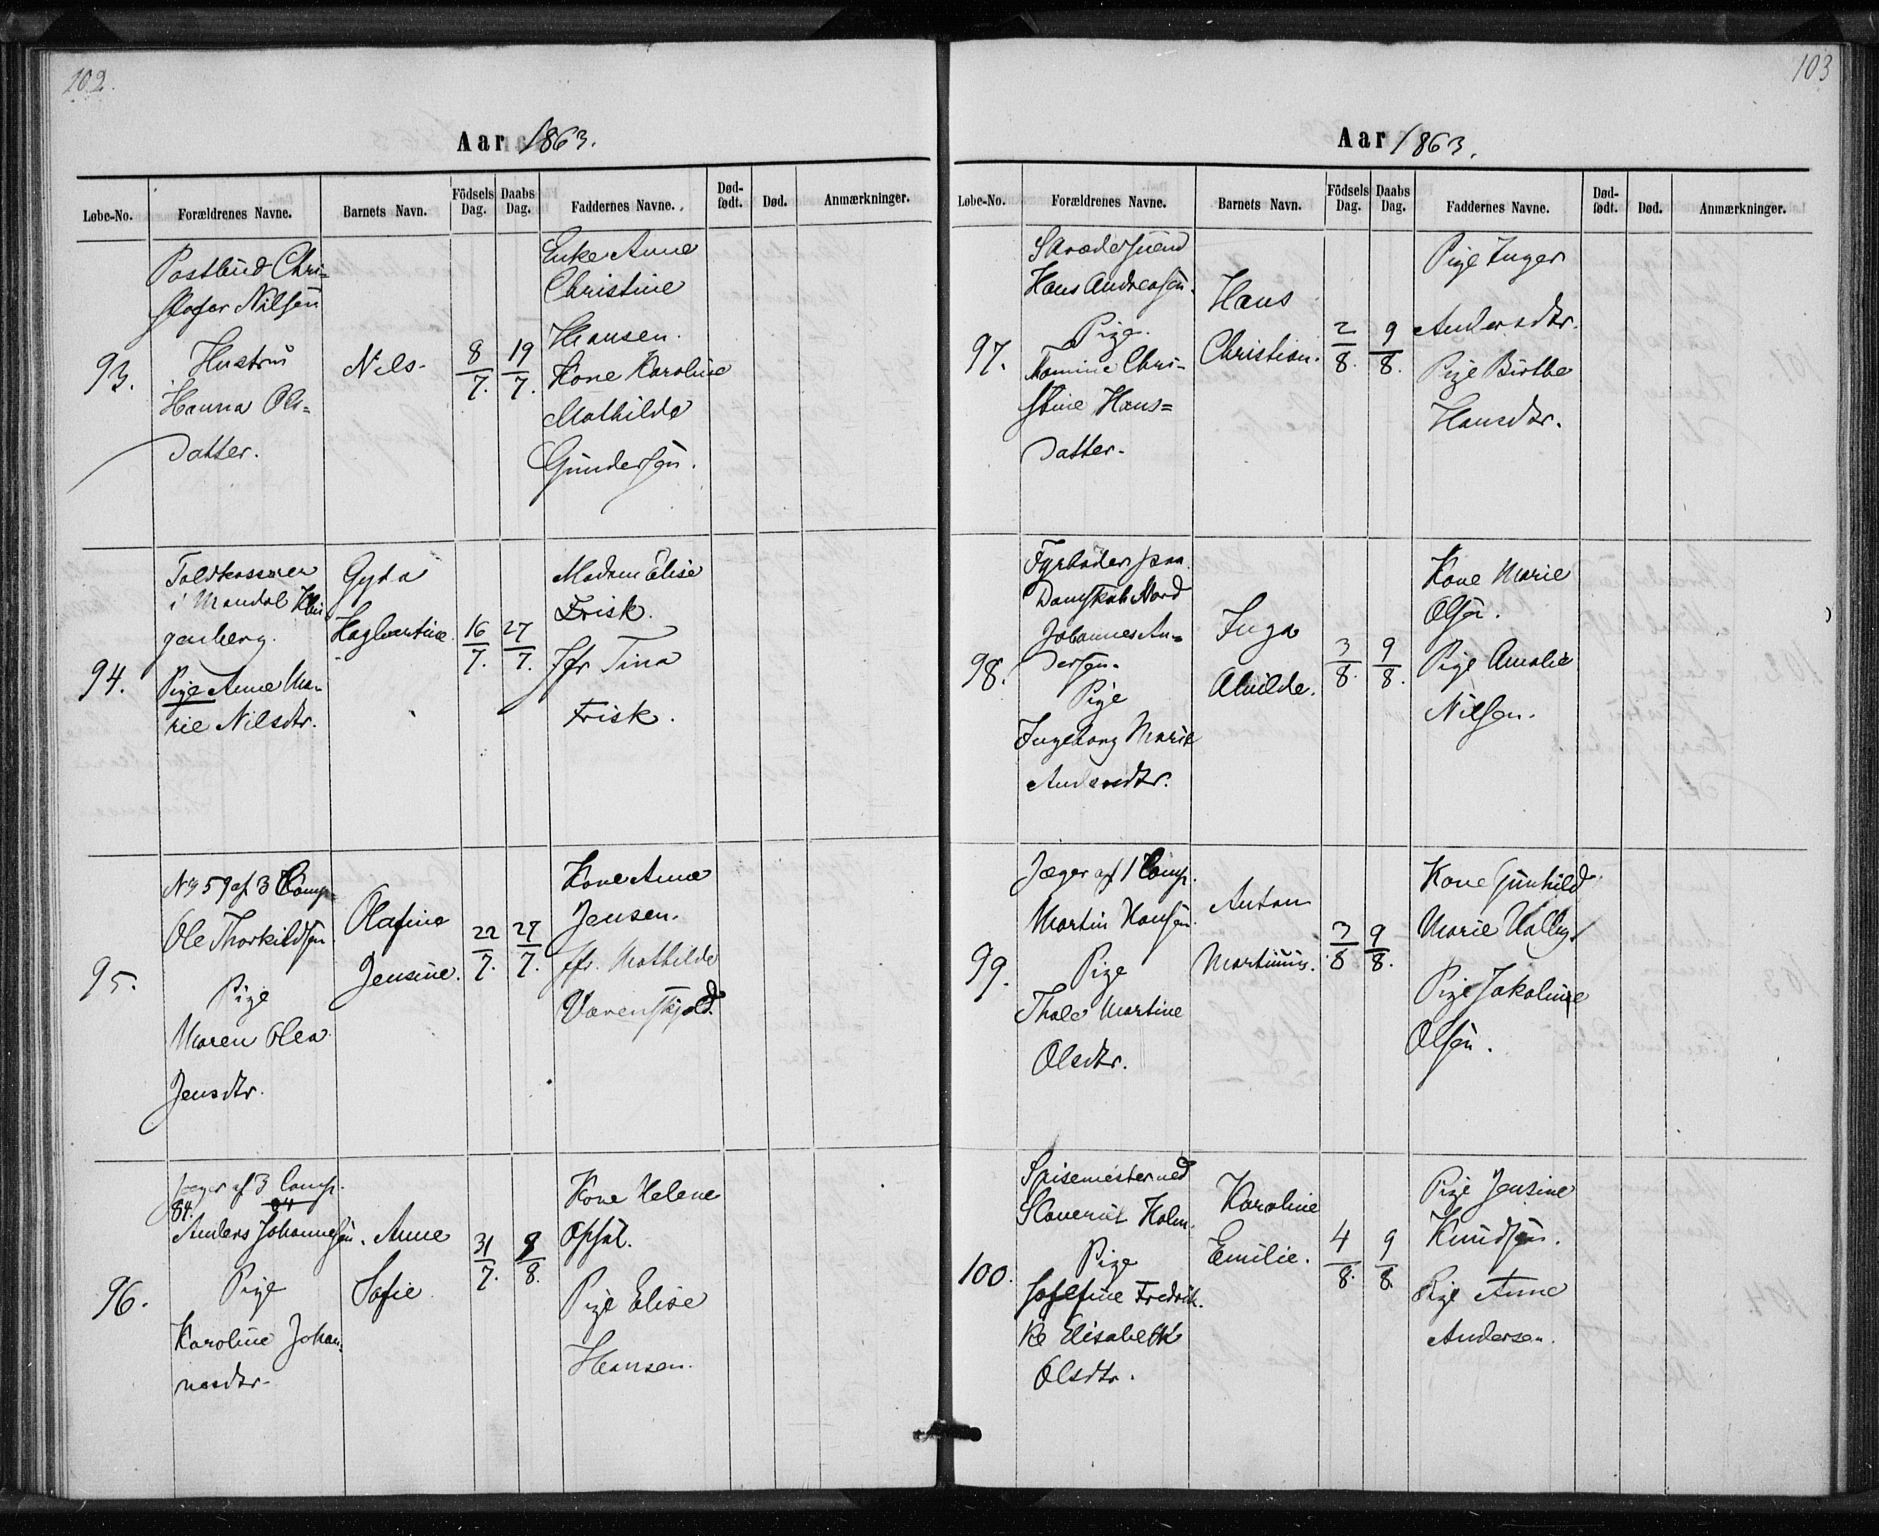 102.
Aar 1863.
Løbe-No. Forældrenes Navne. Barnets Navn. Födsels Dag. Daabs Dag. Faddernes Navne. Død-født. Død. Anmærkninger.
93.
Postbud Chri-
stofer Nilsen
Hustru
Hanna Ols-
datter.
Nils.
8/7.
19/7.
Enke Anne
Christine
Hansen.
Kone Karoline
Mathilde
Gundersen.
94.
Toldkasserer
i Mandal
Pige Anne Ma-
rie Nilsdtr.
Gyda
Hagbartine.
16/7.
27/7.
Madam Elise
Frisk.
Jfr Tina
Frisk.
95.
No 59 af 3 Comp.
Ole Thorkildsen
Pige
Maren Olea
Jensdtr.
Olafine
Jensine.
22/7.
27/7.
Kone Anne
Jensen.
Jfr. Mathilde
Varenskjold.
96.
Jæger af 3 Comp.
84.
Anders Johannesen.
Pige
Karoline Johan-
nesdtr.
Anne
Sofie
31/7.
9/8.
Kone Helene
Opsal.
Pige Elise
Hansen.
103
Aar 1863.
Løbe-No. Forældrenes Navne. Barnets Navn. Födsels Dag. Daabs Dag. Faddernes Navne. Død-født. Død. Anmærkninger.
97.
Skrædersvend
Hans Andreasen.
Pige
Mamine Chri-
stine Hans-
datter.
Hans
Christian.
2/8.
9/8.
Pige Inger
Andersdtr.
Pige Birthe
Hansdtr.
98.
Fyrbøder paa
Dampskib Nord
Johannes An-
dersen.
Pige
Ingeborg Marie
Andersdtr.
Inga
Alvilde.
3/8.
9/8.
Kone Marie
Olsen.
Pige Amalie
Nilsen.
99.
Jæger af 1 Comp.
Martin Hansen.
Pige
Thale Martine
Olsdtr.
Anton
Martinius.
3/8
9/8.
Kone Gunhild
Marie Halby
Pige Jakobine
Olsen.
100.
Spisemester ved
Slaveriet Holm.
Pige
Josefine Fredrik-
ke Elisabeth
Olsdtr.
Karoline
Emilie.
4/8.
9/8.
Pige Jensine
Knudsen.
Pige Anne
Andersen.